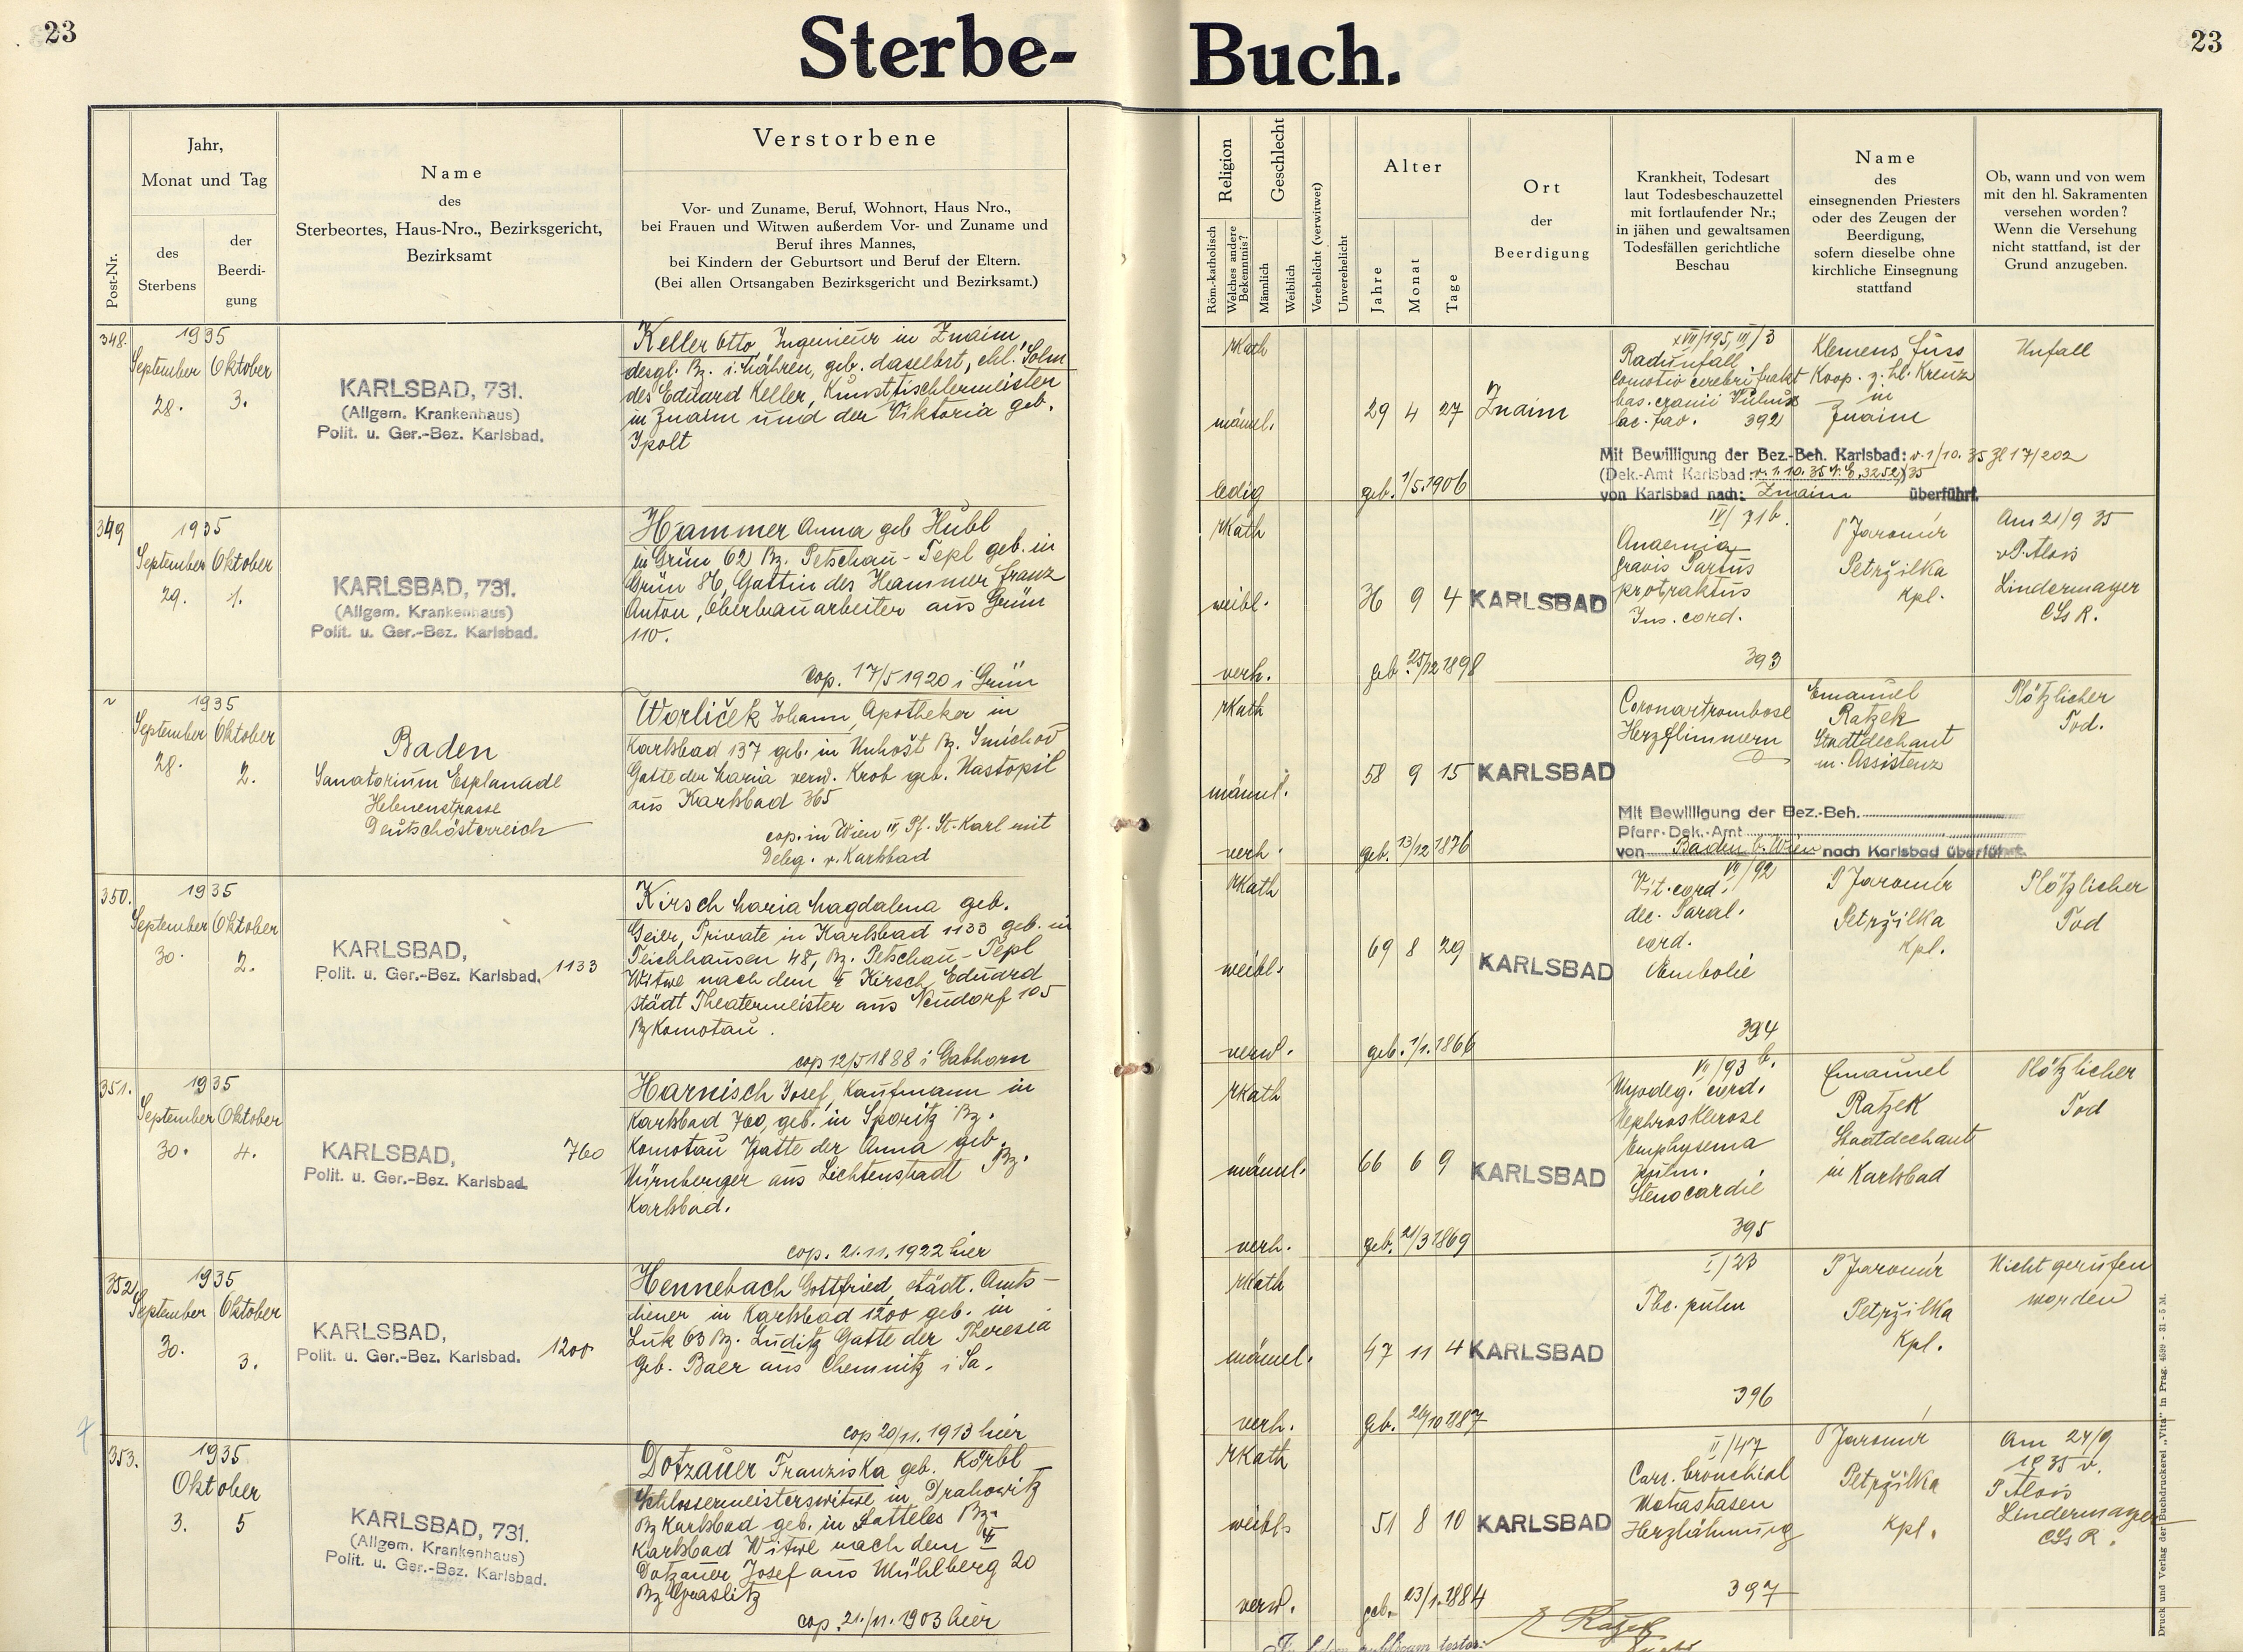 23
Sterbe- Buch.
23
Post-Nr.
Jahr,
Monat und Tag
des
Sterbens
der
Beerdi-
gung
Name
des
Sterbeortes, Haus-Nro., Bezirksgericht,
Bezirksamt
Verstorbene
Vor- und Zuname, Beruf, Wohnort, Haus Nro.,
bei Frauen und Witwen außerdem Vor- und Zuname und
Beruf ihres Mannes,
bei Kindern der Geburtsort und Beruf der Eltern.
(Bei allen Ortsangaben Bezirksgericht und Bezirksamt.)
Religion
Röm.-katholisch
Welches andere
Bekenntnis?
Geschlecht
Männlich
Weiblich
Verehelicht (verwitwet)
Unverehelicht
Alter
Jahre
Monat
Tage
Ort
der
Beerdigung
Krankheit, Todesart
laut Todesbeschauzettel
mit fortlaufender Nr.;
in jähen und gewaltsamen
Todesfällen gerichtliche
Beschau
Name
des
einsegnenden Priesters
oder des Zeugen der
Beerdigung,
sofern dieselbe ohne
kirchliche Einsegnung
stattfand
Ob, wann und von wem
mit den hl. Sakramenten
versehen worden?
Wenn die Versehung
nicht stattfand, ist der
Grund anzugeben.
348.
1935
September Oktober
28. 3.
KARLSBAD, 731.
(Allgem. Krankenhaus)
Polit. u. Ger.-Bez. Karlsbad.
Keller Otto, Ingenieur in Znaim
desgl. Bz. i. Mähren, geb. daselbst, ehl. Sohn
des Eduard Keller, Kunsttischlermeister
in Znaim und der Viktoria geb.
Ipolt
rkath
männl.
ledig
29 4 27
geb. 1/5.1906
Znaim
XVII/195, III/3
Radunfall
Comotio cerebri frakt
bas. cranii Vulnus
lac. 392
Klemens Füss
Koop. z. hl. Kreuz
in
Znaim
Unfall
Mit Bewilligung der Bez.-Beh. Karlsbad: v. 1/10. 35 Zl 17/202
(Dek.-Amt Karlsbad: v. 1.10.35 N. E. 3252/35
von Karlsbad nach: Znaim überführt.
349
1935
September Oktober
29. 1.
KARLSBAD, 731.
(Allgem. Krankenhaus)
Polit. u. Ger.-Bez. Karlsbad.
Hammer Anna geb Hübl
in Grün 62 Bz. Petschau - Tepl geb. in
Grün 86, Gattin des Hammer Franz
Anton, Oberbauarbeiter aus Grün
110.
cop. 17/5 1920 i Grün
rkath
weibl.
verh.
36 9 4
geb. 25/12 1898
KARLSBAD
IV/71 b.
Anaemia
gravis Partus
protraktus
Ins. cord.
393
P Jaromír
Petržilka
Kpl.
Am 21/9 35
v P. Alois
Lindermayer
CSs R.
1935
September Oktober
28. 2.
Baden
Sanatorium Esplanade
Helenenstrasse
Deutschösterreich
Worliček Johann, Apotheker in
Karlsbad 137 geb. in Unhošt Bz. Smichov
Gatte der Maria verw. Krob geb. Nastopil
aus Karlsbad 365
cop. in Wien IV, Pf. St. Karl mit
Deleg. v. Karlsbad
rkath
männl.
verh.
58 9 15
geb. 13/12 1876
KARLSBAD
Coronartrombose
Herzflimmern
Emanuel
Ratzek
Stadtdechant
m. Assistenz
Plötzlicher
Tod.
Mit Bewilligung der Bez.-Beh.
Pfarr-Dek.-Amt
von Baden b. Wien nach Karlsbad überführt.
350.
1935
September Oktober
30. 2.
KARLSBAD,
Polit. u. Ger.-Bez. Karlsbad. 1133
Kirsch Maria Magdalena geb.
Geier, Private in Karlsbad 1133 geb. in
Teichhäusen 48, Bz. Petschau - Tepl
Witwe nach dem Kirsch Eduard
städt Theatermeister aus Neudorf 105
Bz Komotau.
cop 12/5 1888 i Gabhorn
rkath
weibl.
verw.
69 8 29
geb. 1/1. 1866
KARLSBAD
VII/92
Vit. cord.
dec. Paral.
cord.
Embolie
394
P Jaromír
Petržilka
Kpl.
Plötzlicher
Tod
351.
1935
September Oktober
30. 4.
KARLSBAD,
Polit. u. Ger.-Bez. Karlsbad. 760
Harnisch Josef, Kaufmann in
Karlsbad 760, geb. in Sporitz Bz.
Komotau Gatte der Anna geb.
Nürnberger aus Lichtenstadt Bz.
Karlsbad.
cop. 21.11.1922 hier
rkath
männl.
verh.
66 6 9
geb. 21/3 1869
KARLSBAD
VII/93 b.
Myodeg. cord.
Nephrosklerose
Emphysema
pulm.
Stenocardie
395
Emanuel
Ratzek
Stadtdechant
in Karlsbad
Plötzlicher
Tod
352.
1935
September Oktober
30. 3.
KARLSBAD,
Polit. u. Ger.-Bez. Karlsbad. 1200
Hennebach Gottfried, städt. Amts-
diener in Karlsbad 1200 geb. in
Luk 63 Bz. Luditz Gatte der Theresia
geb. Baer aus Chemnitz i Sa.
cop 20/11. 1913 hier
rkath
männl.
verh.
47 11 4
geb. 26/10 1887
KARLSBAD
I/23
Tbc. pulm
396
P Jaromír
Petržilka
Kpl.
Nicht gerufen
worden
353.
1935
Oktober
3. 5
KARLSBAD, 731.
(Allgem. Krankenhaus)
Polit. u. Ger.-Bez. Karlsbad.
Dotzauer Franziska geb. Körbl
Schlossermeisterswitwe in Drahowitz
Bz Karlsbad geb. in Satteles Bz.
Karlsbad Witwe nach dem
Dotzauer Josef aus Mühlberg 20
Bz Graslitz
cop. 21./11. 1903 hier
rkath
weibl.
verw.
51 8 10
geb. 23/1. 1884
KARLSBAD
II/47
Carc. bronchial
Metastasen
Herzlähmung
397
P Jaromír
Petržilka
Kpl.
Am 24/9
1935 v.
P Alois
Lindermayer
CSs R.
Ratzek
Druck und Verlag der Buchdruckerei „Vita" in Prag. 4599 - 31 - 5 M.